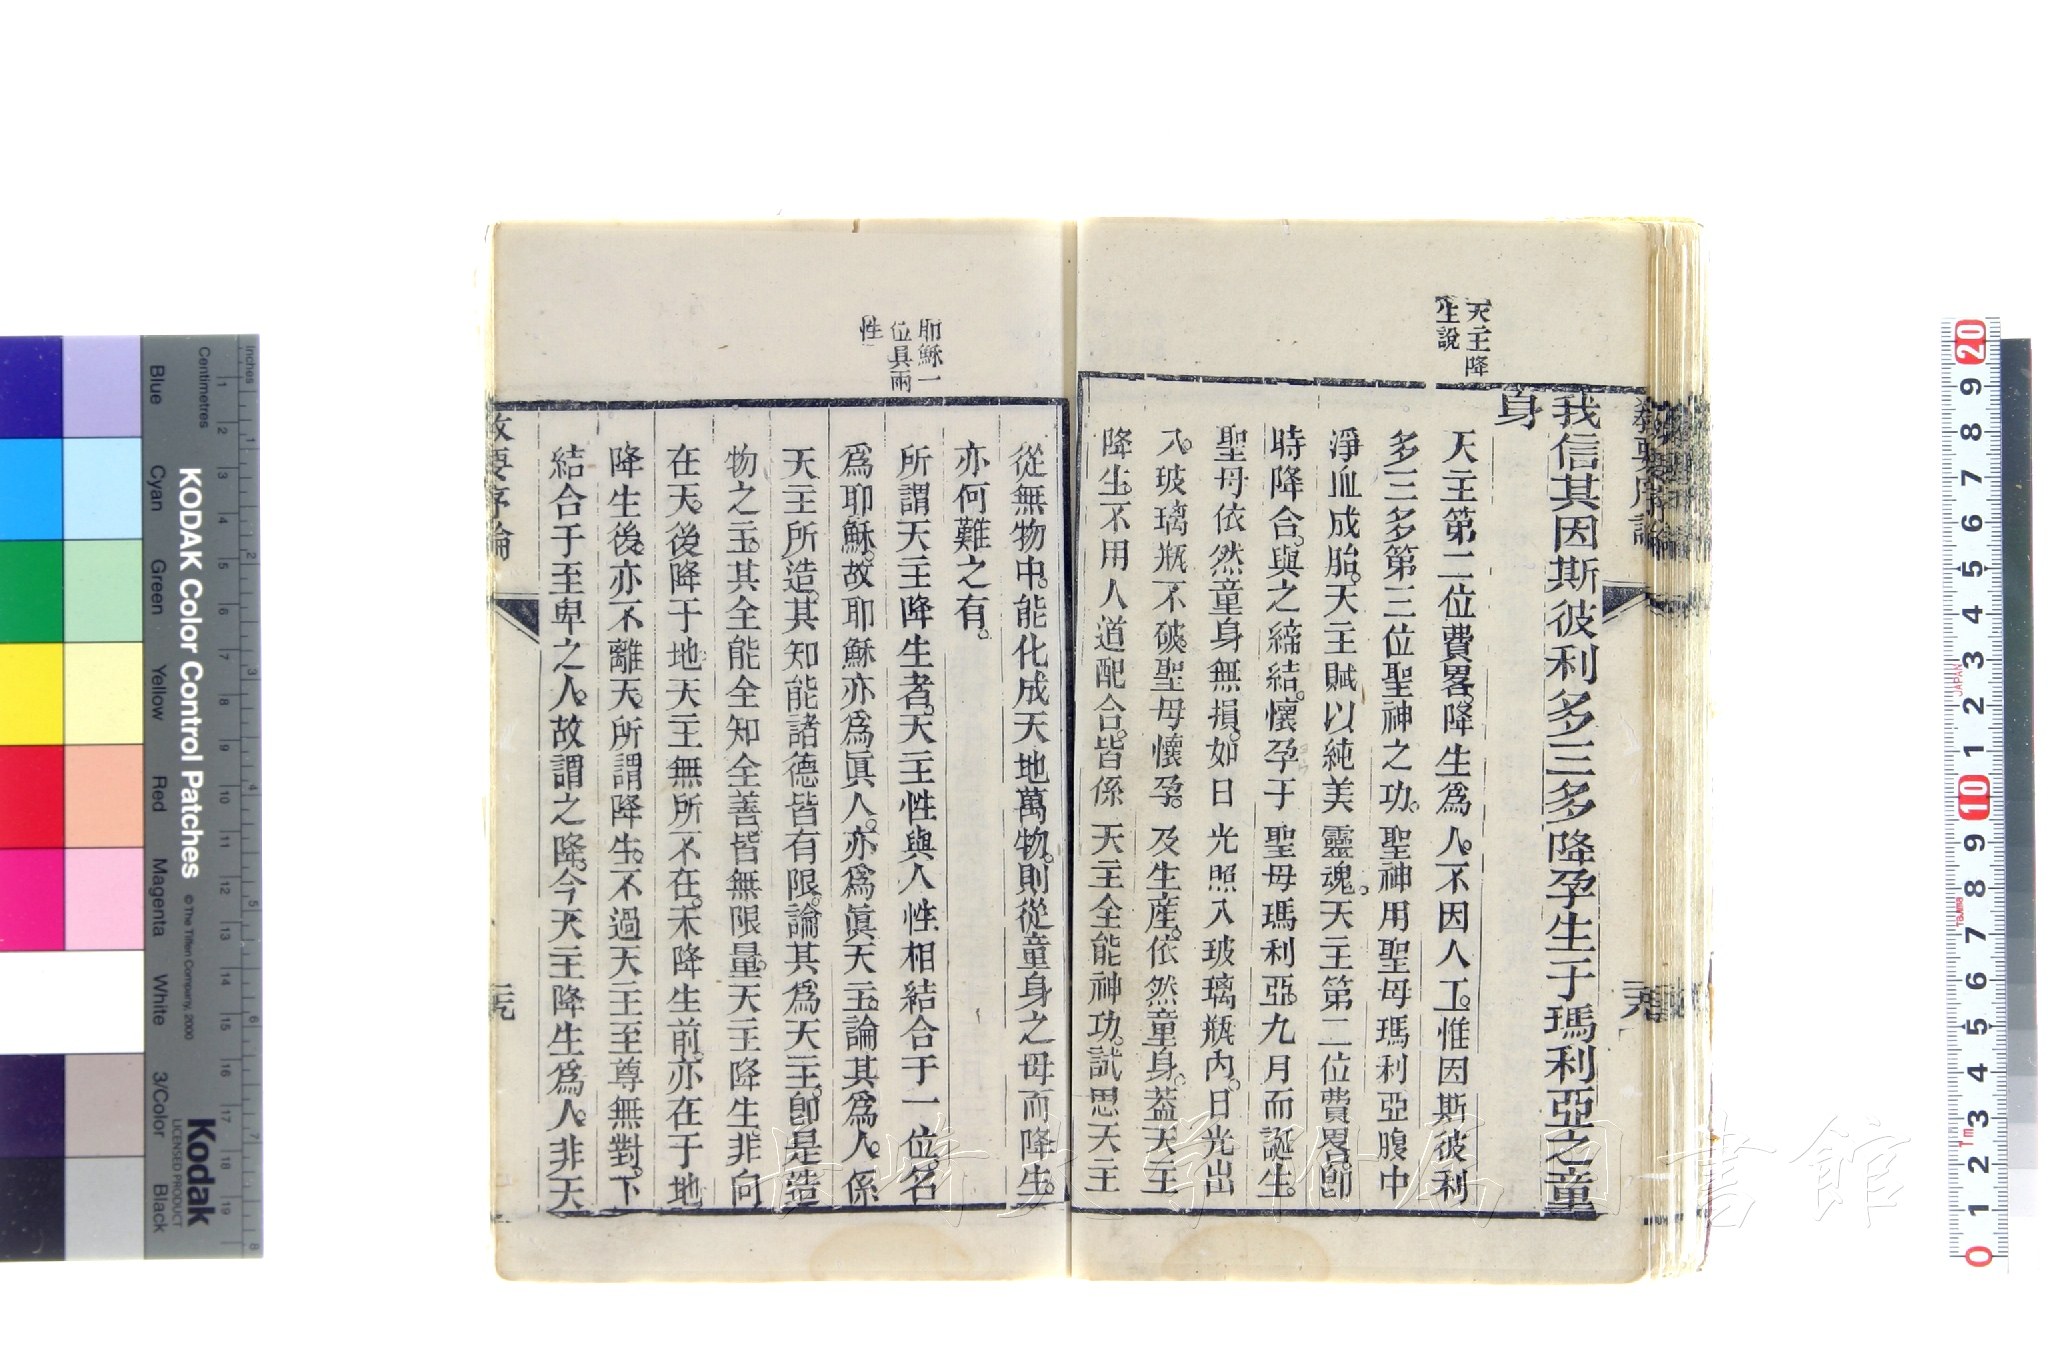 天主降
生說
我信其因斯彼利多三多降孕生于瑪利亞之童
身
天主第二位費畧。降生爲人。不因人工。惟因斯彼利
多三多第三位聖神之功。聖神用聖母瑪利亞腹中
淨血成胎。天主賦以純美靈魂。天主第二位費畧。卽
時降合。與之締結。懷孕于聖母瑪利亞。九月而誕生。
聖母依然童身無損。如日光照入玻璃瓶內。日光出
入。玻璃瓶不破。聖母懷孕。及生產。依然童身。葢天主
降生。不用人道配合。皆係天主全能神功。試思天主
耶穌一
位具兩
性
從無物中。能化成天地萬物。則從童身之母而降生。
亦何難之有。
所謂天主降生者。天主性與人性相結合于一位。名
爲耶穌。故耶穌亦爲眞人。亦爲眞天主。論其爲人。係
天主所造。其知能諸德皆有限。論其爲天主。卽是造
物之主。其全能全知全善。皆無限量。天主降生非向
在天。後降于地。天主無所不在。未降生前。亦在于地
降生後。亦不離天。所謂降生。不過天主至尊無對。下
結合于至卑之人。故謂之降。今天主降生爲人。非天
教要序論
二九
KODAK Color Control Patches
© The Tiffen Company, 2000
Kodak
LICENSED PRODUCT
Inches
Centimetres
Blue
Cyan
Green
Yellow
Red
Magenta
White
3/Color
Black
JAPAN